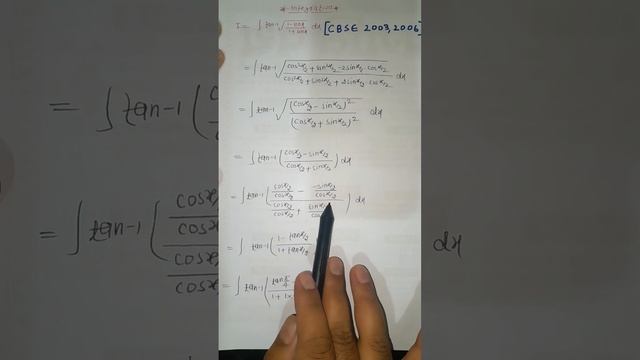 * Integration *
I = ∫ tan-1 √(1-sinx / 1+sinx) dx [CBSE 2003, 2006]
= ∫ tan-1 √(cos²x/2 + sin²x/2 - 2sinx/2 · cosx/2 / cos²x/2 + sin²x/2 + 2sinx/2 · cosx/2) dx
= ∫ tan-1 √((cosx/2 - sinx/2)² / (cosx/2 + sinx/2)²) dx
= ∫ tan-1 (cosx/2 - sinx/2 / cosx/2 + sinx/2) dx
= ∫ tan-1 (cosx/2 / cosx/2 - -sinx/2 / cosx/2 / cosx/2 / cosx/2 + sinx/2 / cos) dx
= ∫ tan-1 (1 - tanx/2 / 1 + tanx/2
= ∫ tan-1 (tan π/4 / 1 + 1x